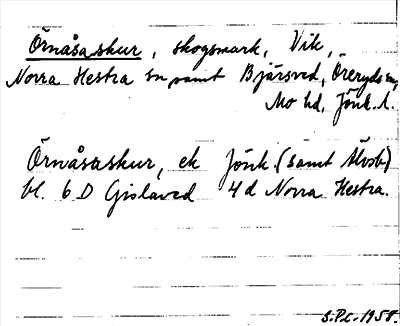 Örnåsaskur, skogsmark, Vik,
Norra Hestra sn samt Bjärsved, Öreryds sn,
Mo hd, Jönk. l.
Örnåsaskur, ek Jönk. (samt Älvsb)
bl. 6 D Gislaved 4 d Norra Hestra.
S.P.C. 1958.